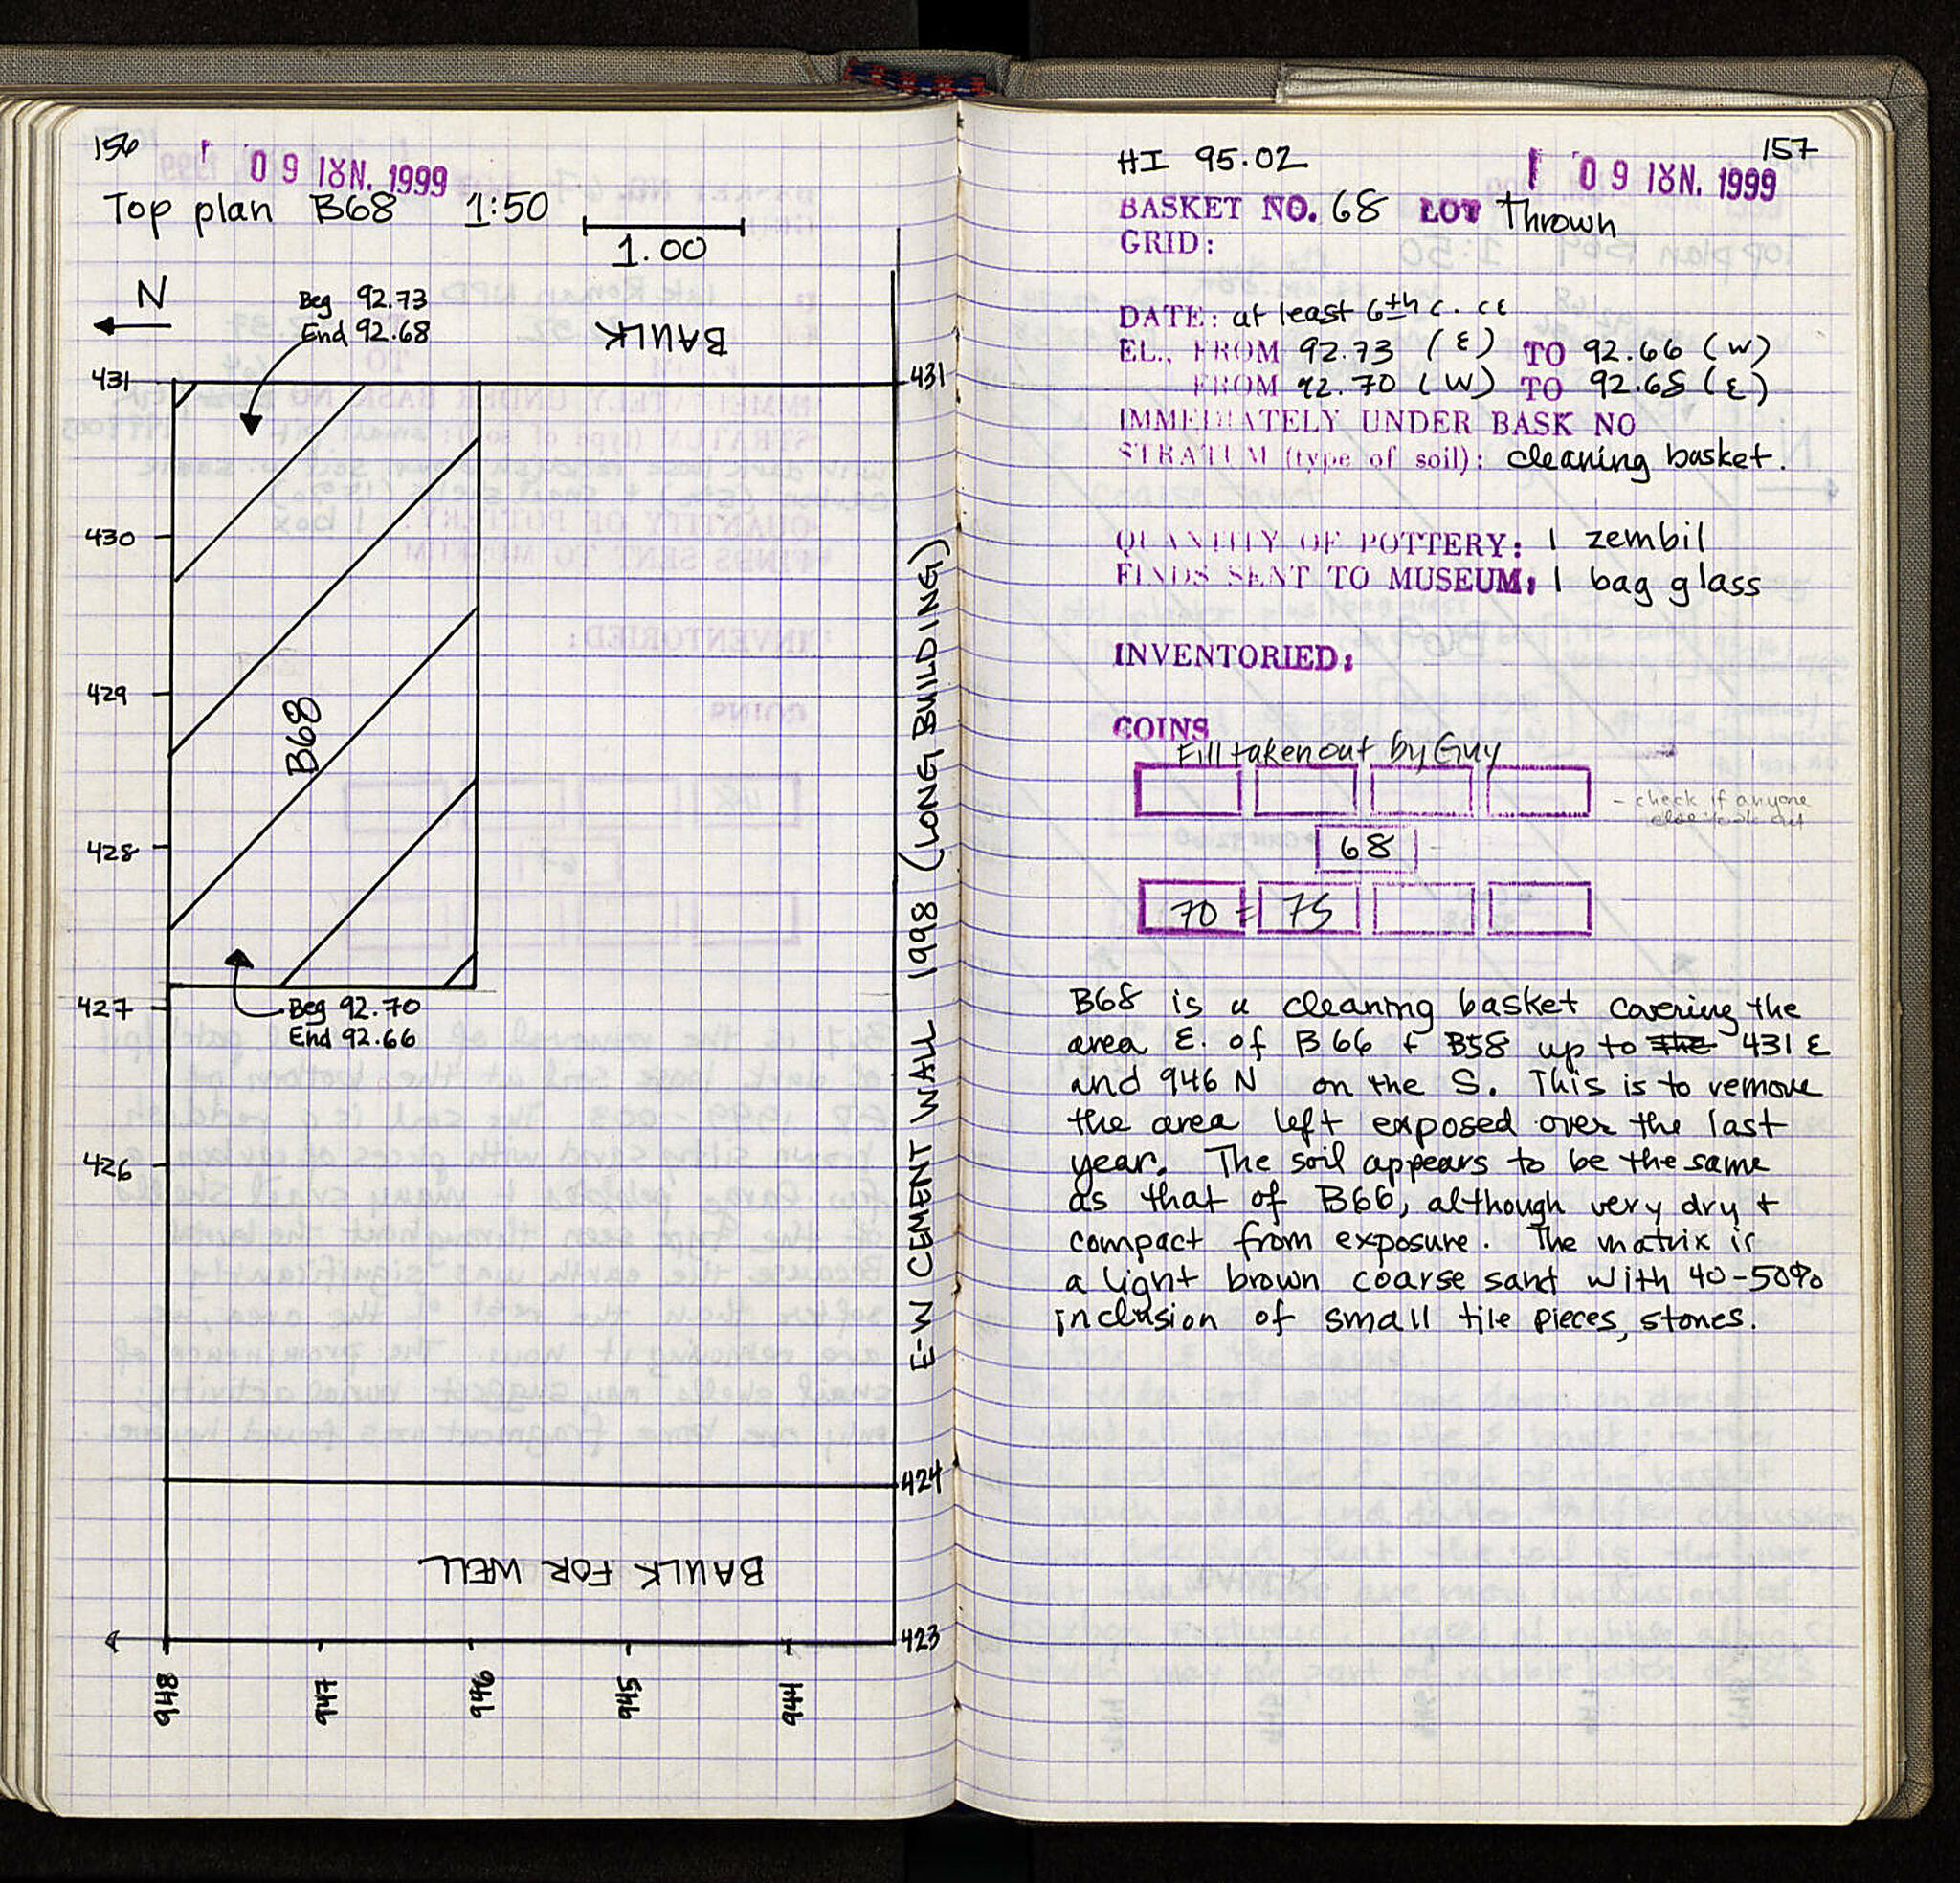 156
09 ΙΟΥΝ. 1999
Top plan B68 1:50
1.00
N
Beg 92.73
End 92.68
BAULK
431
431
430
429
B68
428
427
Beg 92.70
End 92.66
426
E-W CEMENT WALL 1998 (LONG BUILDING)
424
BAULK FOR WELL
423
948
947
946
945
944
157
HI 95.02
09 ΙΟΥΝ. 1999
BASKET NO. 68 LOT Thrown
GRID:
DATE: at least 6th c. CE
EL., FROM 92.73 (E) TO 92.66 (W)
FROM 92.70 (W) TO 92.68 (E)
IMMEDIATELY UNDER BASK NO
STRATUM (type of soil): cleaning basket.
QUANTITY OF POTTERY: 1 zembil
FINDS SENT TO MUSEUM: 1 bag glass
INVENTORIED:
COINS
Fill taken out by Guy
- check if anyone
else took out
68
70 = 75
B68 is a cleaning basket covering the
area E. of B66 + B58 up to the 431 E
and 946 N on the S. This is to remove
the area left exposed over the last
year. The soil appears to be the same
as that of B66, although very dry +
compact from exposure. The matrix is
a light brown coarse sand with 40-50%
inclusion of small tile pieces, stones.